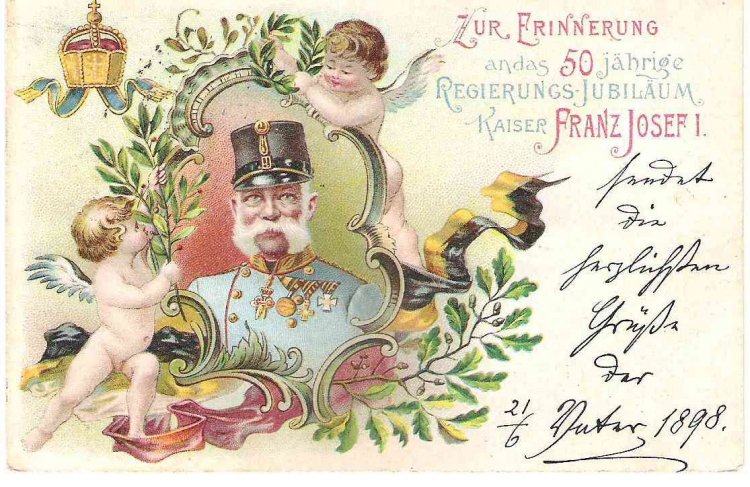 ZUR ERINNERUNG
an das 50 jährige
REGIERUNGS-JUBILÄUM
KAISER FRANZ JOSEF I.
sendet
die
herzlichsten
Grüße
der
21/6 Vater 1898.